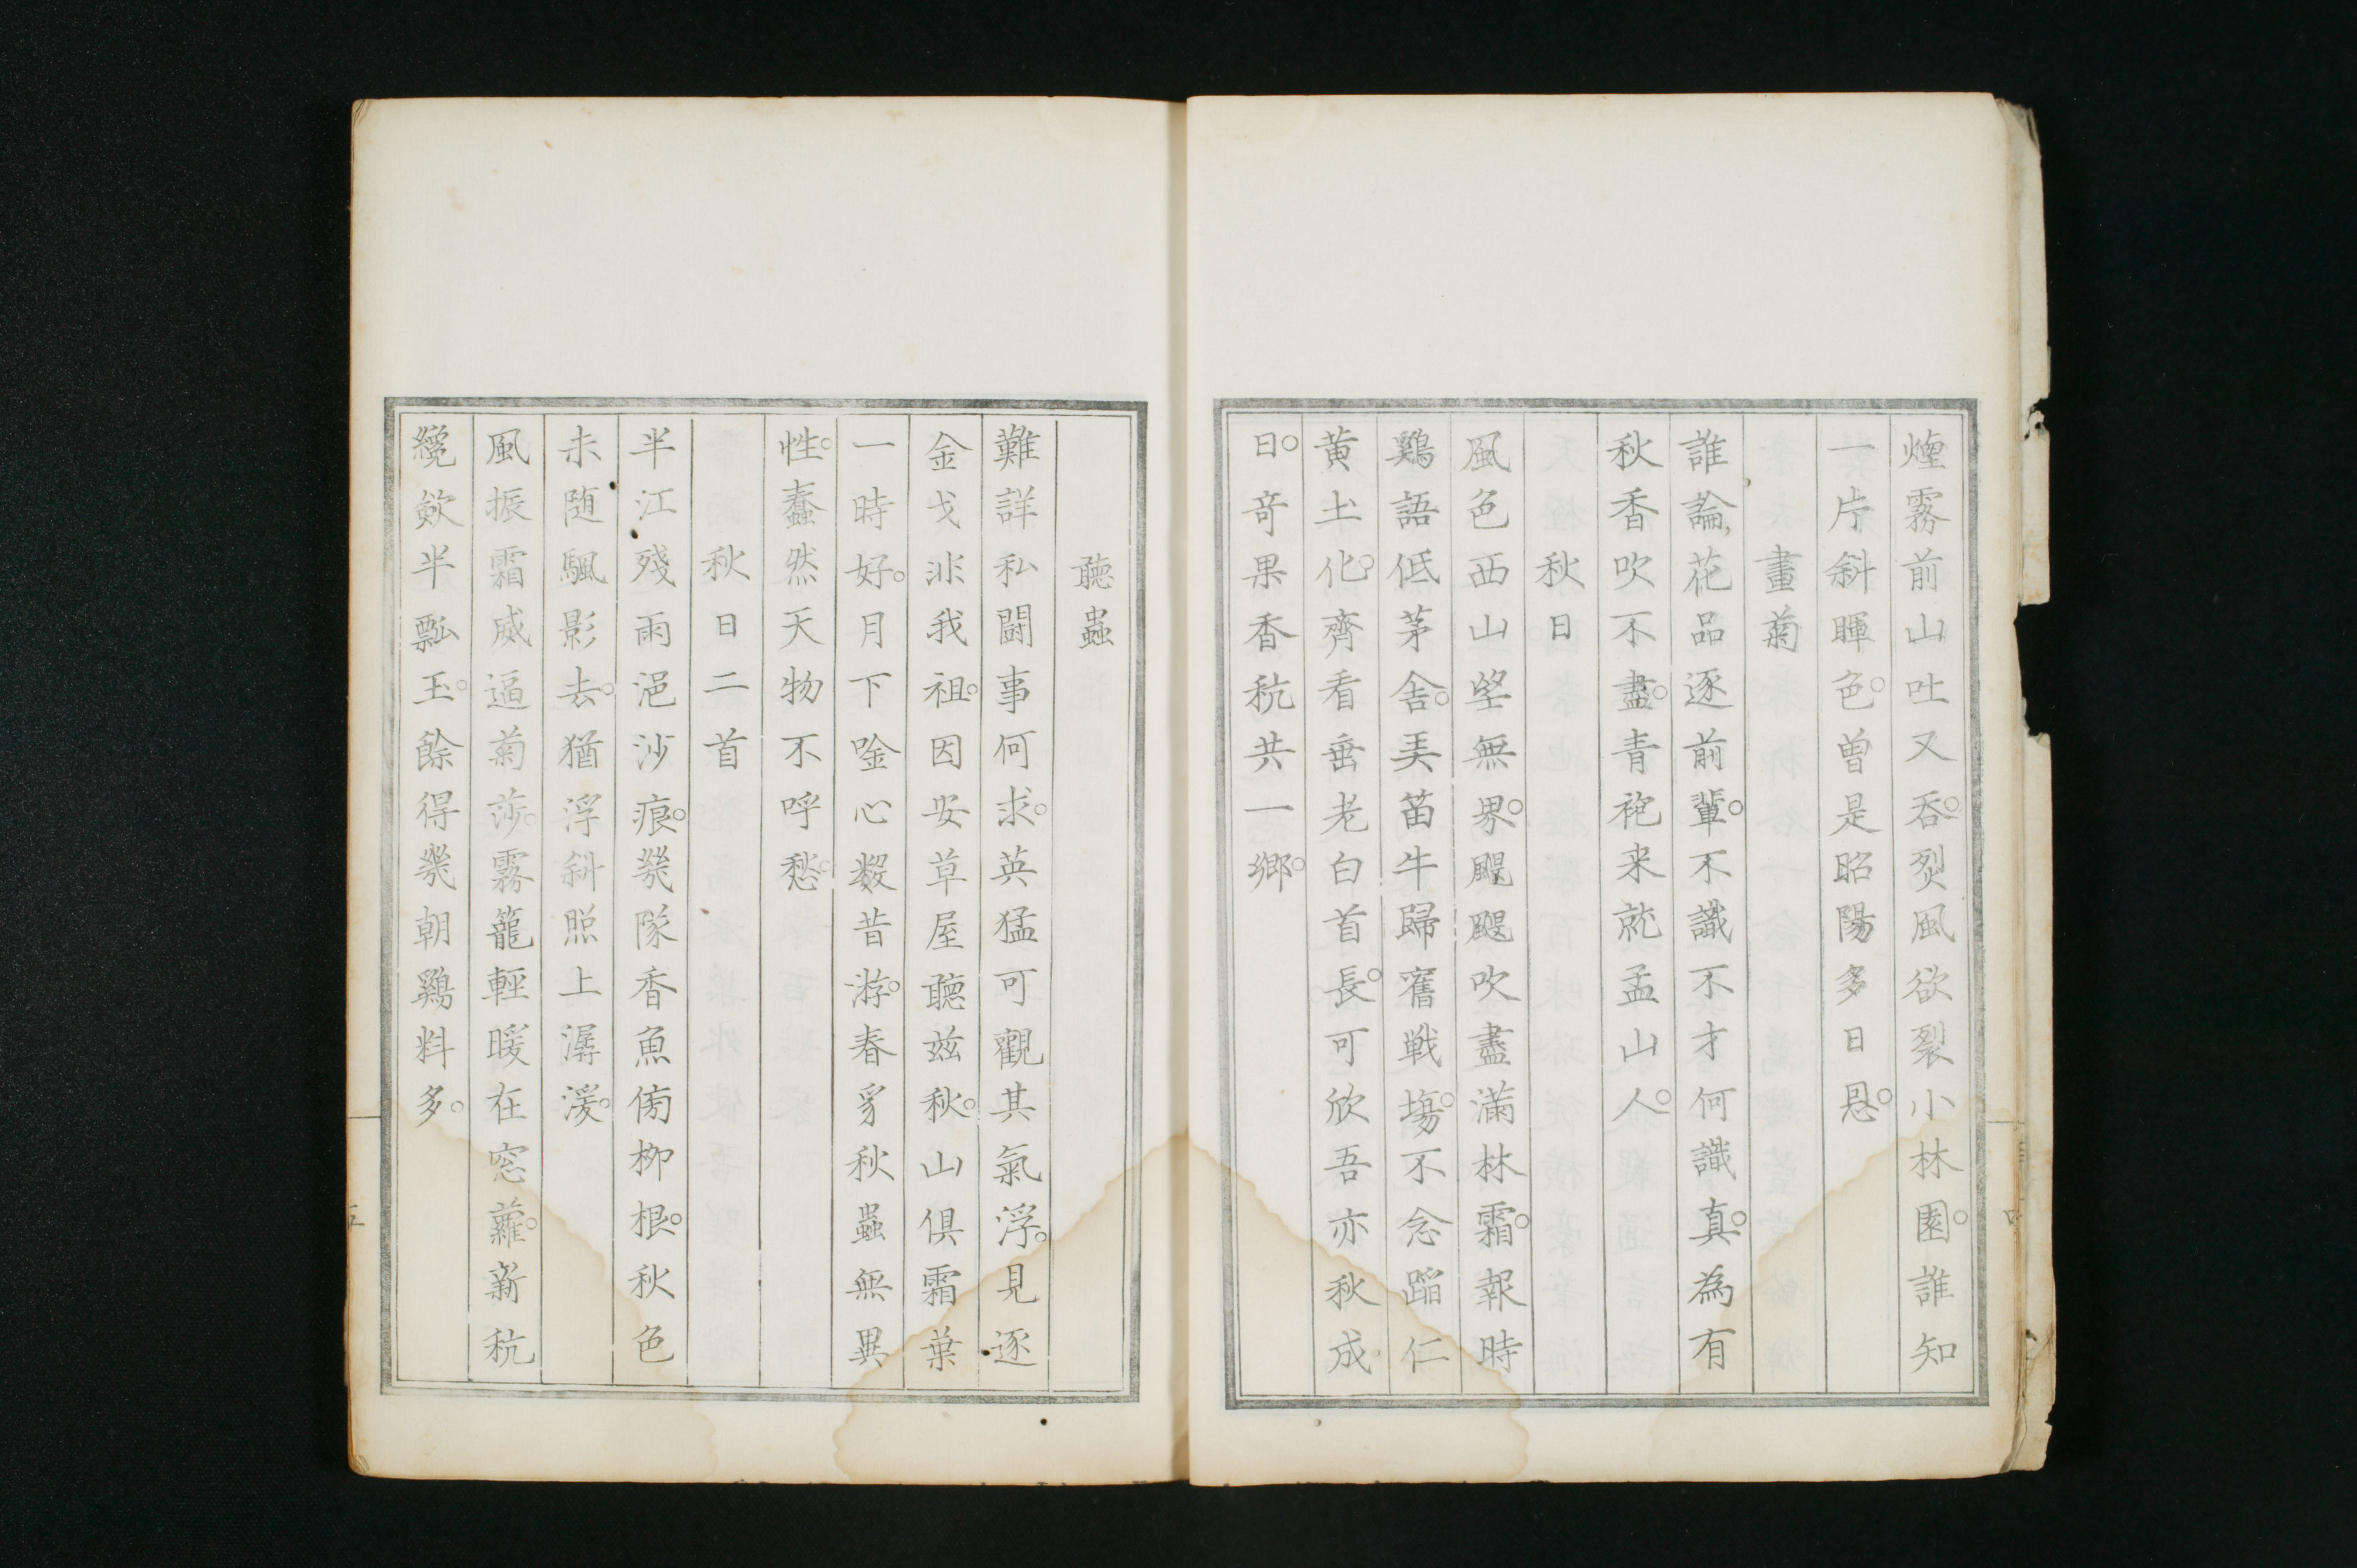 煙霧前山吐又呑。烈風欲裂小林園。誰知
一片斜暉色。曽是昭陽多日恩。
畫菊
誰論花品逐前輩。不識不才何識真。為有
秋香吹不盡。青袍来就孟山人。
秋日
風色西山望無界。颸颸吹盡滿林霜。報時
鷄語低茅舍。美笛牛歸舊戦塲。不念蹈仁
黄土化。齊看垂老白首長。可欣吾亦秋成
日。奇果香秔共一鄉。
聽蟲
難詳私闘事何求。英猛可觀其氣浮。見逐
金戈非我祖。因安草屋聽茲秋。山俱霜葉
一時好。月下唫心数昔游。春豸秋蟲無異
性。蠢然天物不呼愁。
秋日二首
半江殘雨浥沙痕。幾隊香魚傍柳根。秋色
未随颿影去。猶浮斜照上潺湲。
風振霜威逼菊莎。霧籠輕暖在窓蘿。新秔
纔歛半瓢玉。餘得幾朝鷄料多。
五